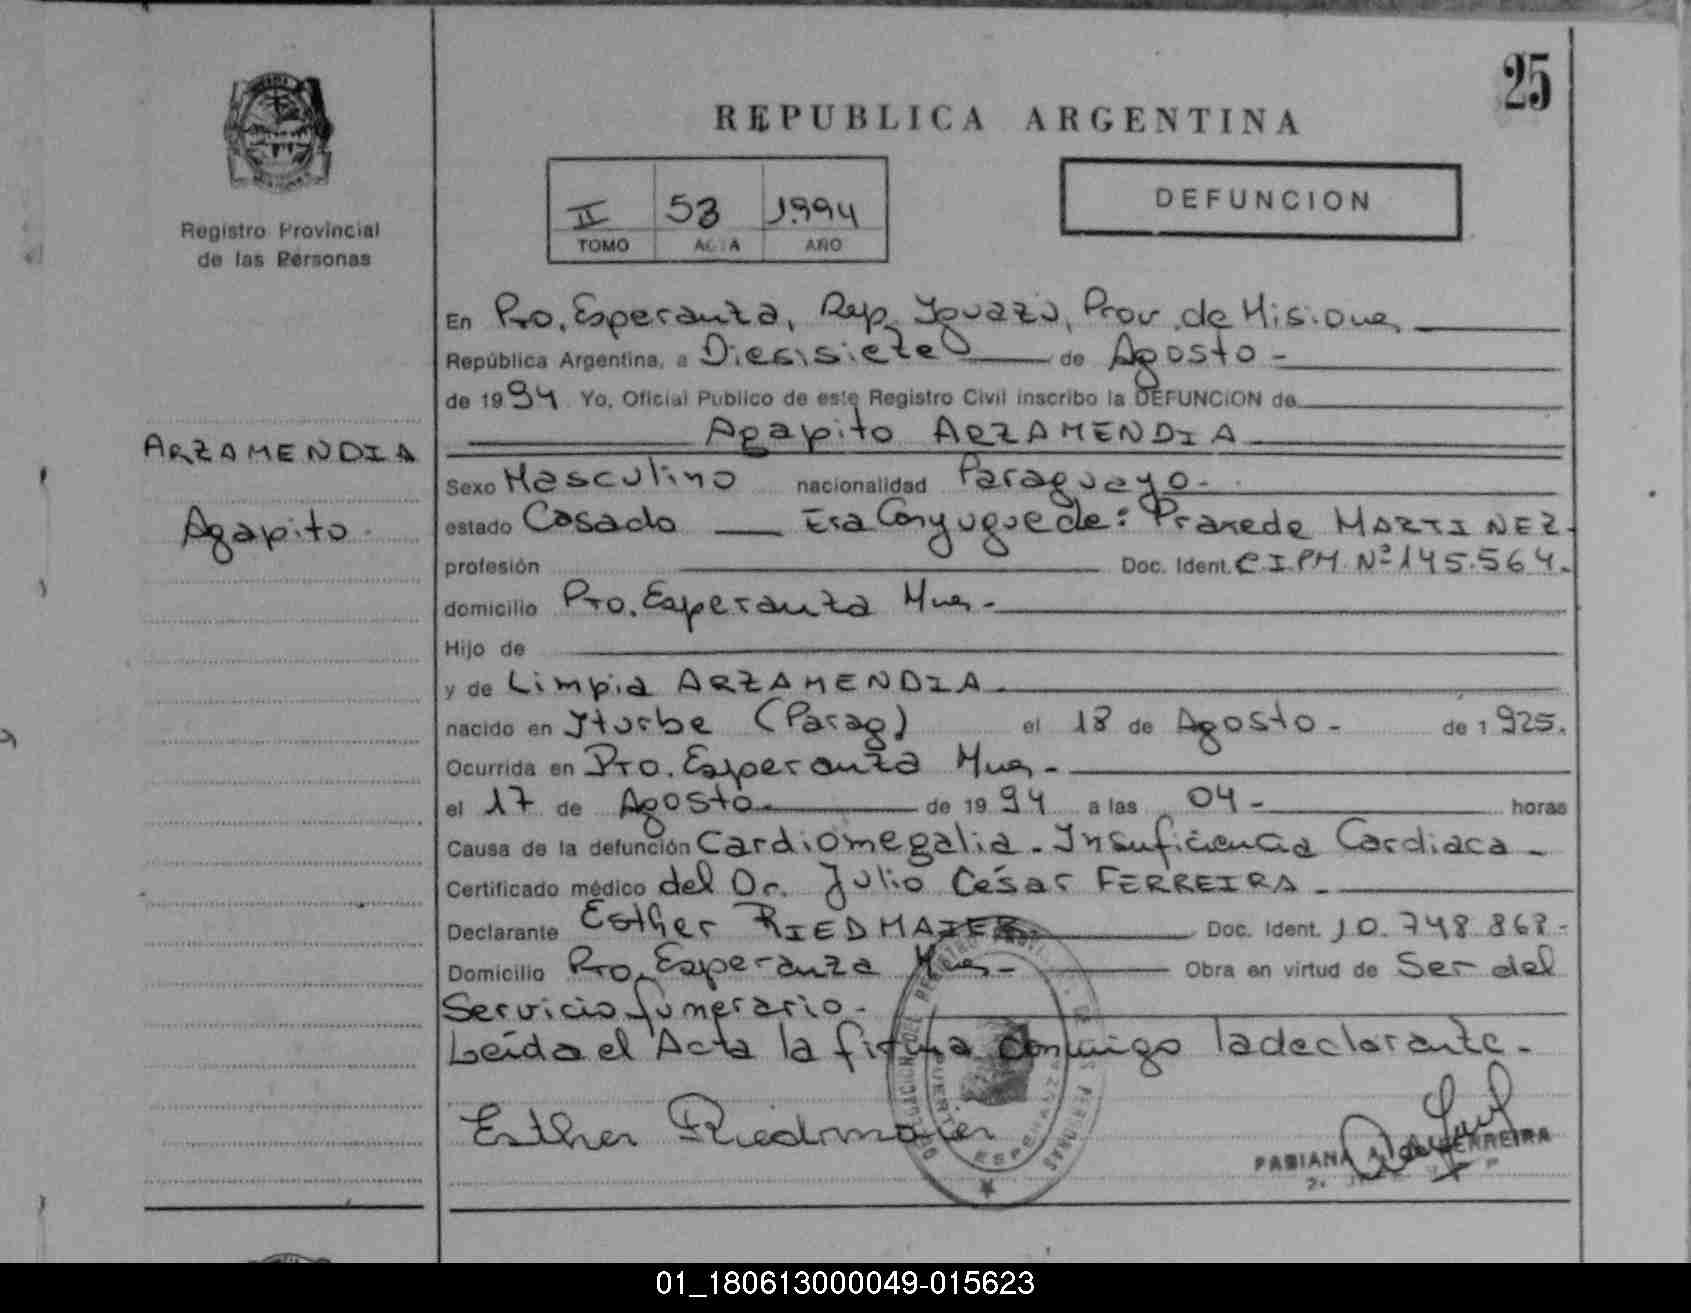 25
REPUBLICA ARGENTINA
II 53 1994
TOMO ACTA AÑO
DEFUNCION
Registro Provincial
de las Personas
ARZAMENDIA
Agapito
En Pto. Esperanza, Dep. Iguazú, Prov. de Misiones
República Argentina, a Diesisiete de Agosto -
de 1994 Yo, Oficial Publico de este Registro Civil inscribo la DEFUNCION de
Agapito ARZAMENDIA
Sexo Masculino nacionalidad Paraguayo -
estado Casado Era Conyugue de: Praxede MARTINEZ.
profesión Doc. Ident. C.I.PM. Nº 145.564.
domicilio Pto. Esperanza Mnes -
Hijo de
y de Limpia ARZAMENDIA.
nacido en Yturbe (Parag) el 18 de Agosto - de 1925.
Ocurrida en Pto. Esperanza Mnes -
el 17 de Agosto. de 1994 a las 04 - horas
Causa de la defunción Cardiomegalia - Insuficiencia Cardiaca -
Certificado médico del Dr. Julio César FERREIRA -
Declarante Esther RIEDMAIER Doc. Ident. 10.748.868 -
Domicilio Pto. Esperanza Mnes - Obra en virtud de Ser del
Servicio funerario -
Leída el Acta la firma conmigo la declarante -
Esther Riedmaier
DELEGACION DEL REGISTRO DE LAS PERSONAS
ESPERANZA
FABIANA FERREIRA
01_180613000049-015623